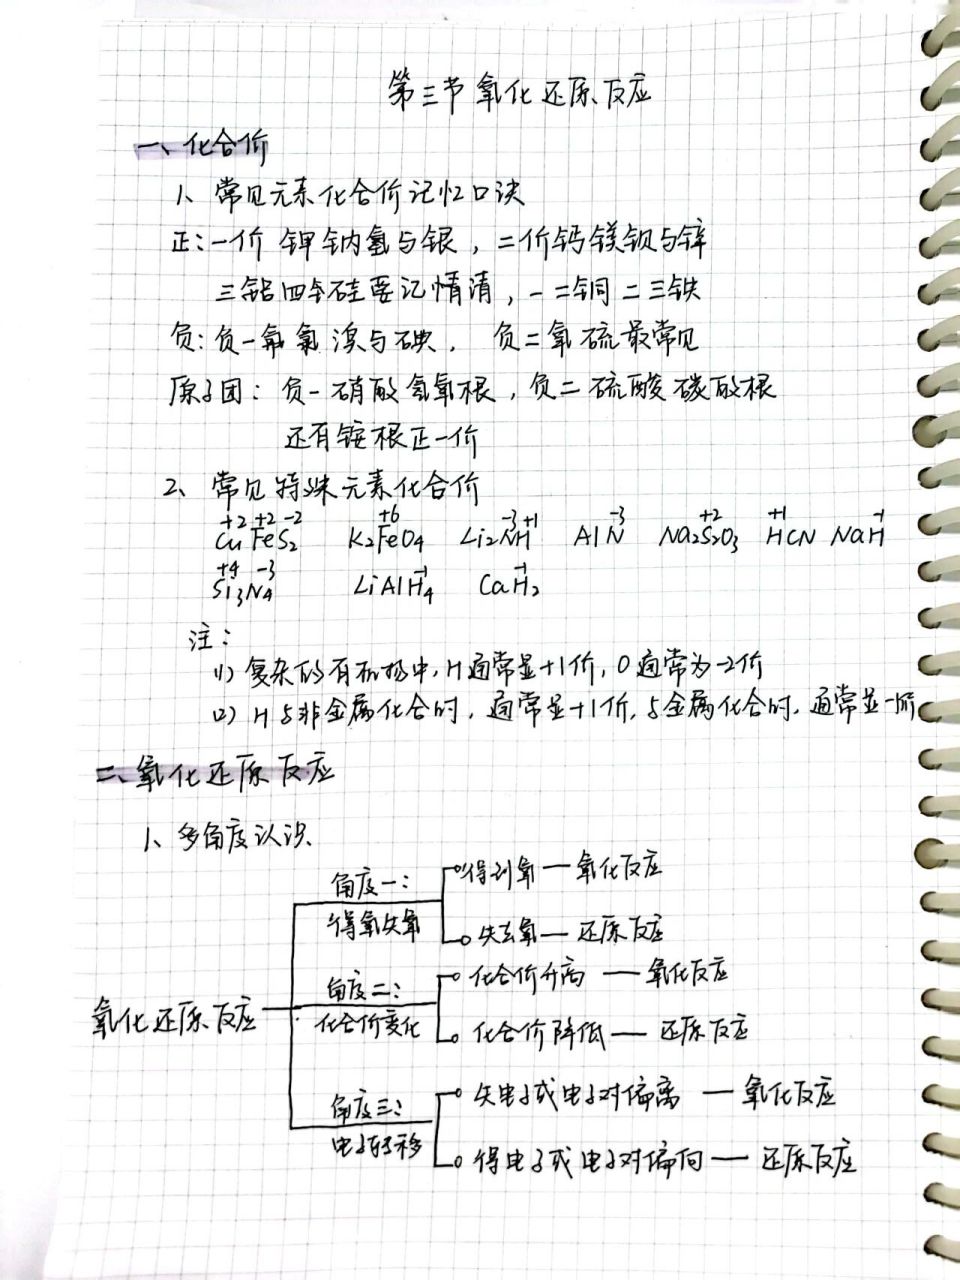 第三节 氧化还原反应
一、化合价
1、常见元素化合价记忆口诀
正:一价钾钠氢与银，二价钙镁钡与锌
三铝四硅要记情清，一二铜二三铁
负:负一氟氯溴与碘，负二氧硫最常见
原子团：负一硝酸氢氧根，负二硫酸碳酸根
还有铵根正一价
2、常见特殊元素化合价
+2 +2 -2 +6 -3 +1 -3 +2 +1 -1
CuFeS₂ K₂FeO₄ Li₂NH AlN Na₂S₂O₃ HCN NaH
+4 -3 -1 -1
Si₃N₄ LiAlH₄ CaH₂
注：
(1) 复杂的有机物中，H通常显+1价，O通常为-2价
(2) H与非金属化合时，通常显+1价，与金属化合时，通常显-1价
二、氧化还原反应
1、多角度认识
氧化还原反应
角度一：
得氧失氧
得到氧—氧化反应
失去氧—还原反应
角度二：
化合价变化
化合价升高—氧化反应
化合价降低—还原反应
角度三：
电子转移
失电子或电子对偏离—氧化反应
得电子或电子对偏向—还原反应